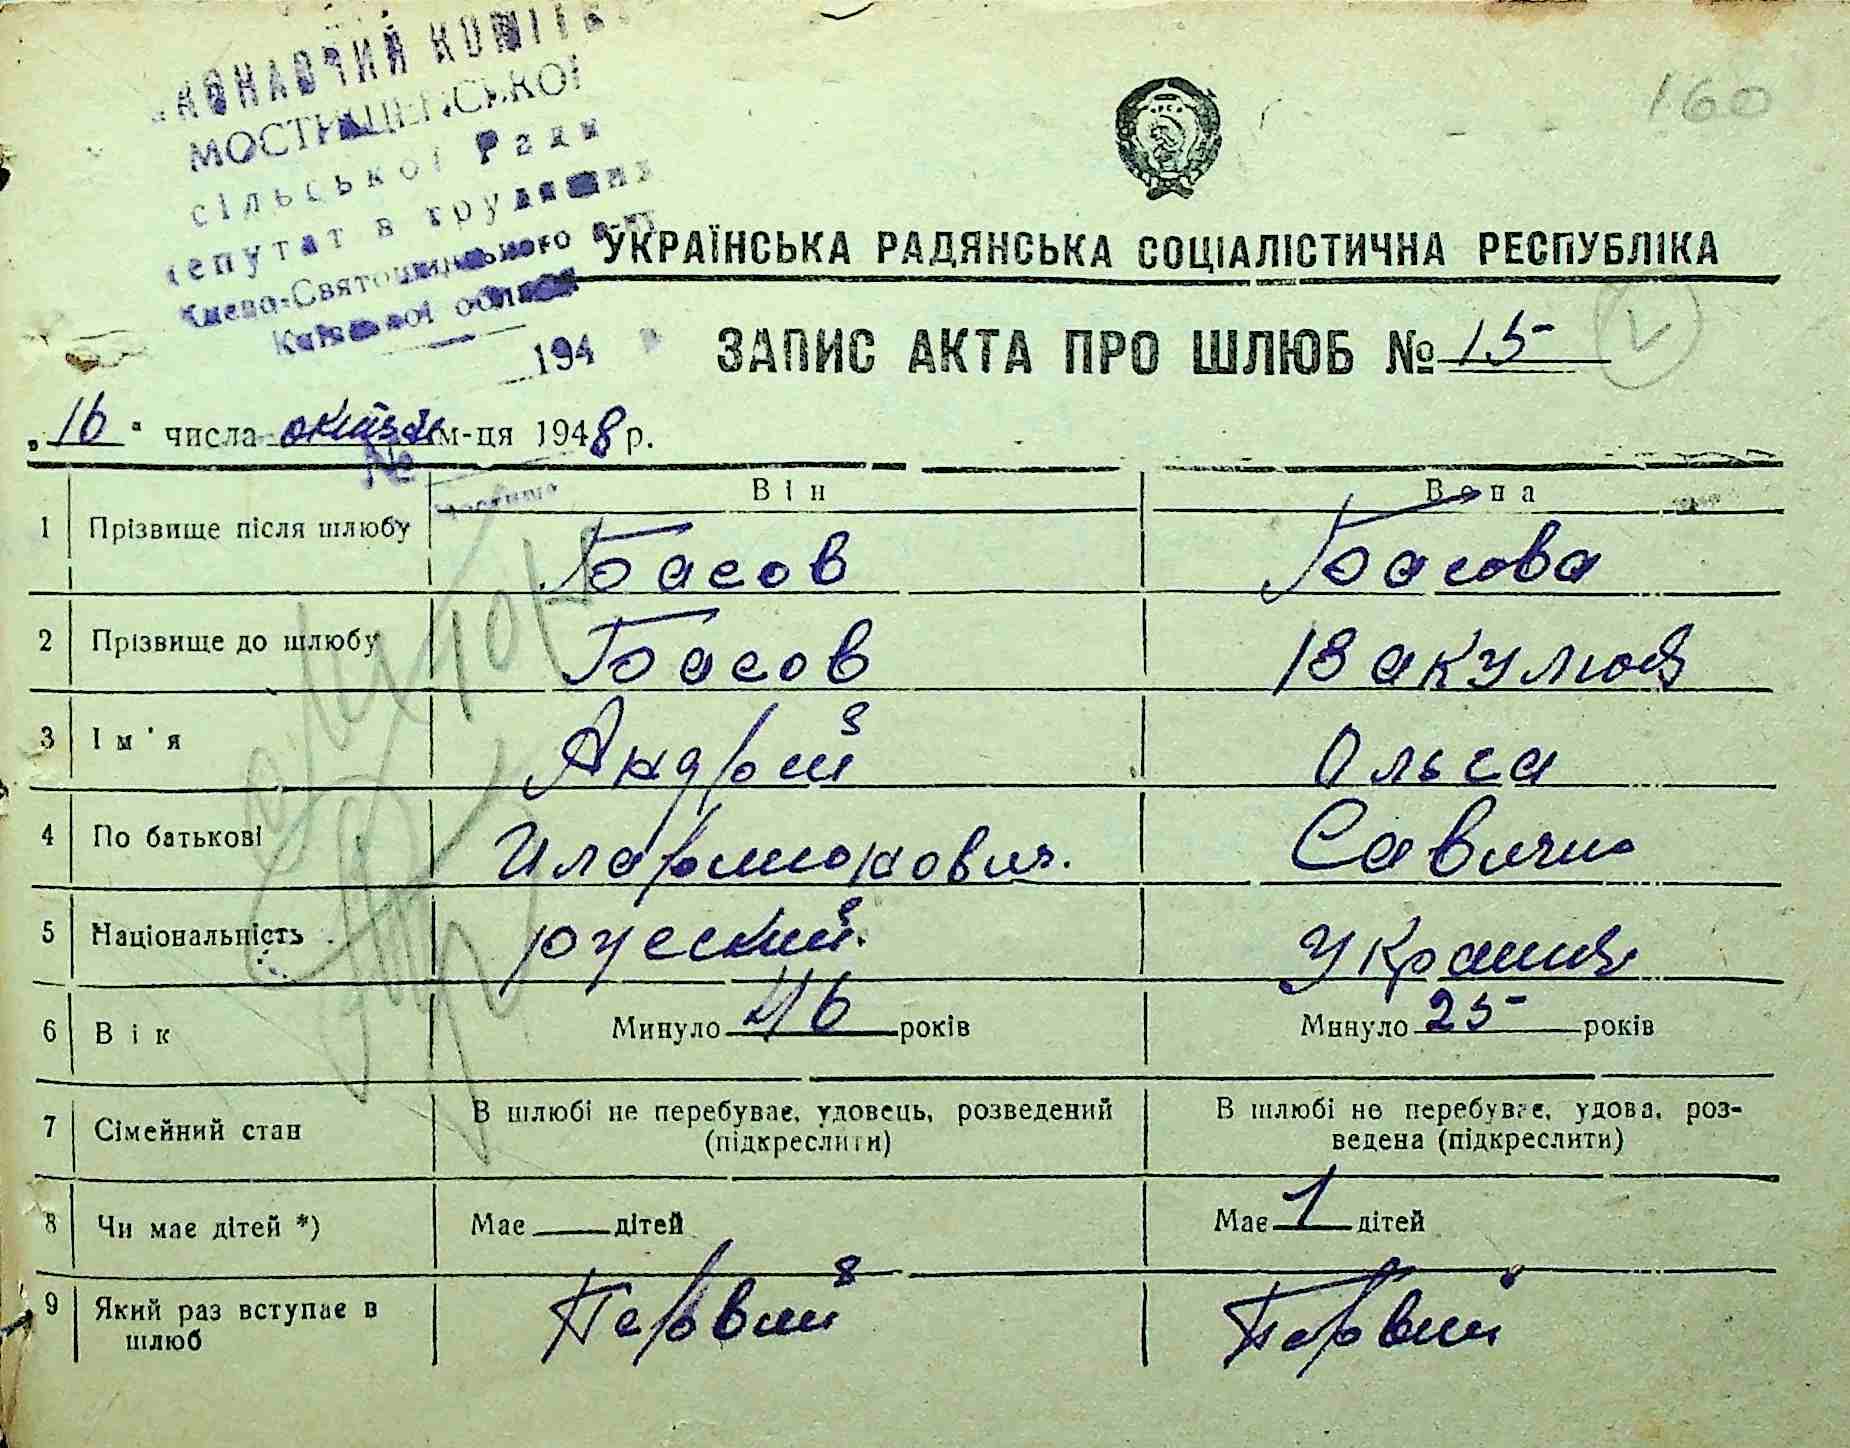 160
МОСТИЩЕНСЬКОЇ
сільської Ради
депутатів трудящих
Києво-Святошинського р-ну
Київської області
194
УКРАЇНСЬКА РАДЯНСЬКА СОЦІАЛІСТИЧНА РЕСПУБЛІКА
ЗАПИС АКТА ПРО ШЛЮБ № 15
"16" числа м-ця 1948 р.
№
Він Вона
1 Прізвище після шлюбу Басов Басова
2 Прізвище до шлюбу Басов
3 Ім'я Андрей Ольга
4 По батькові Иларионович. Савична
5 Національність руский.
6 Вік Минуло 46 років Минуло 25 років
7 Сімейний стан В шлюбі не перебуває, удовець, розведений (підкреслити) В шлюбі не перебуває, удова, роз-
ведена (підкреслити)
8 Чи має дітей *) Має дітей Має 1 дітей
9 Який раз вступає в Первий Первий
шлюб